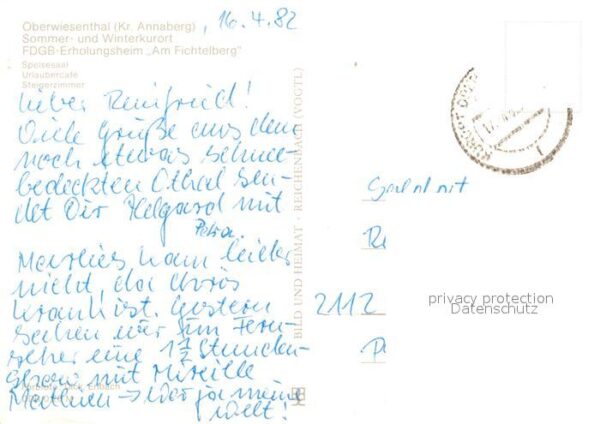 Oberwiesenthal (Kr. Annaberg)
, 16.4.82
Sommer- und Winterkurort
FDGB-Erholungsheim „Am Fichtelberg"
Speisesaal
Urlaubercafé
Steigerzimmer
Lieber Reinfried!
Viele Grüße aus dem
noch etwas schnee-
bedeckten Othal sen-
det Dir Helgard mit
Petra.
Marlies kam leider
nicht, da Doris
krank ist. Gestern
sahen wir im Fern-
seher eine 1 1/2 Stunden-
Show mit Mireille
Mathieu → War ja meine
Welt!
BILD UND HEIMAT · REICHENBACH (VOGTL)
2112
privacy protection
Datenschutz